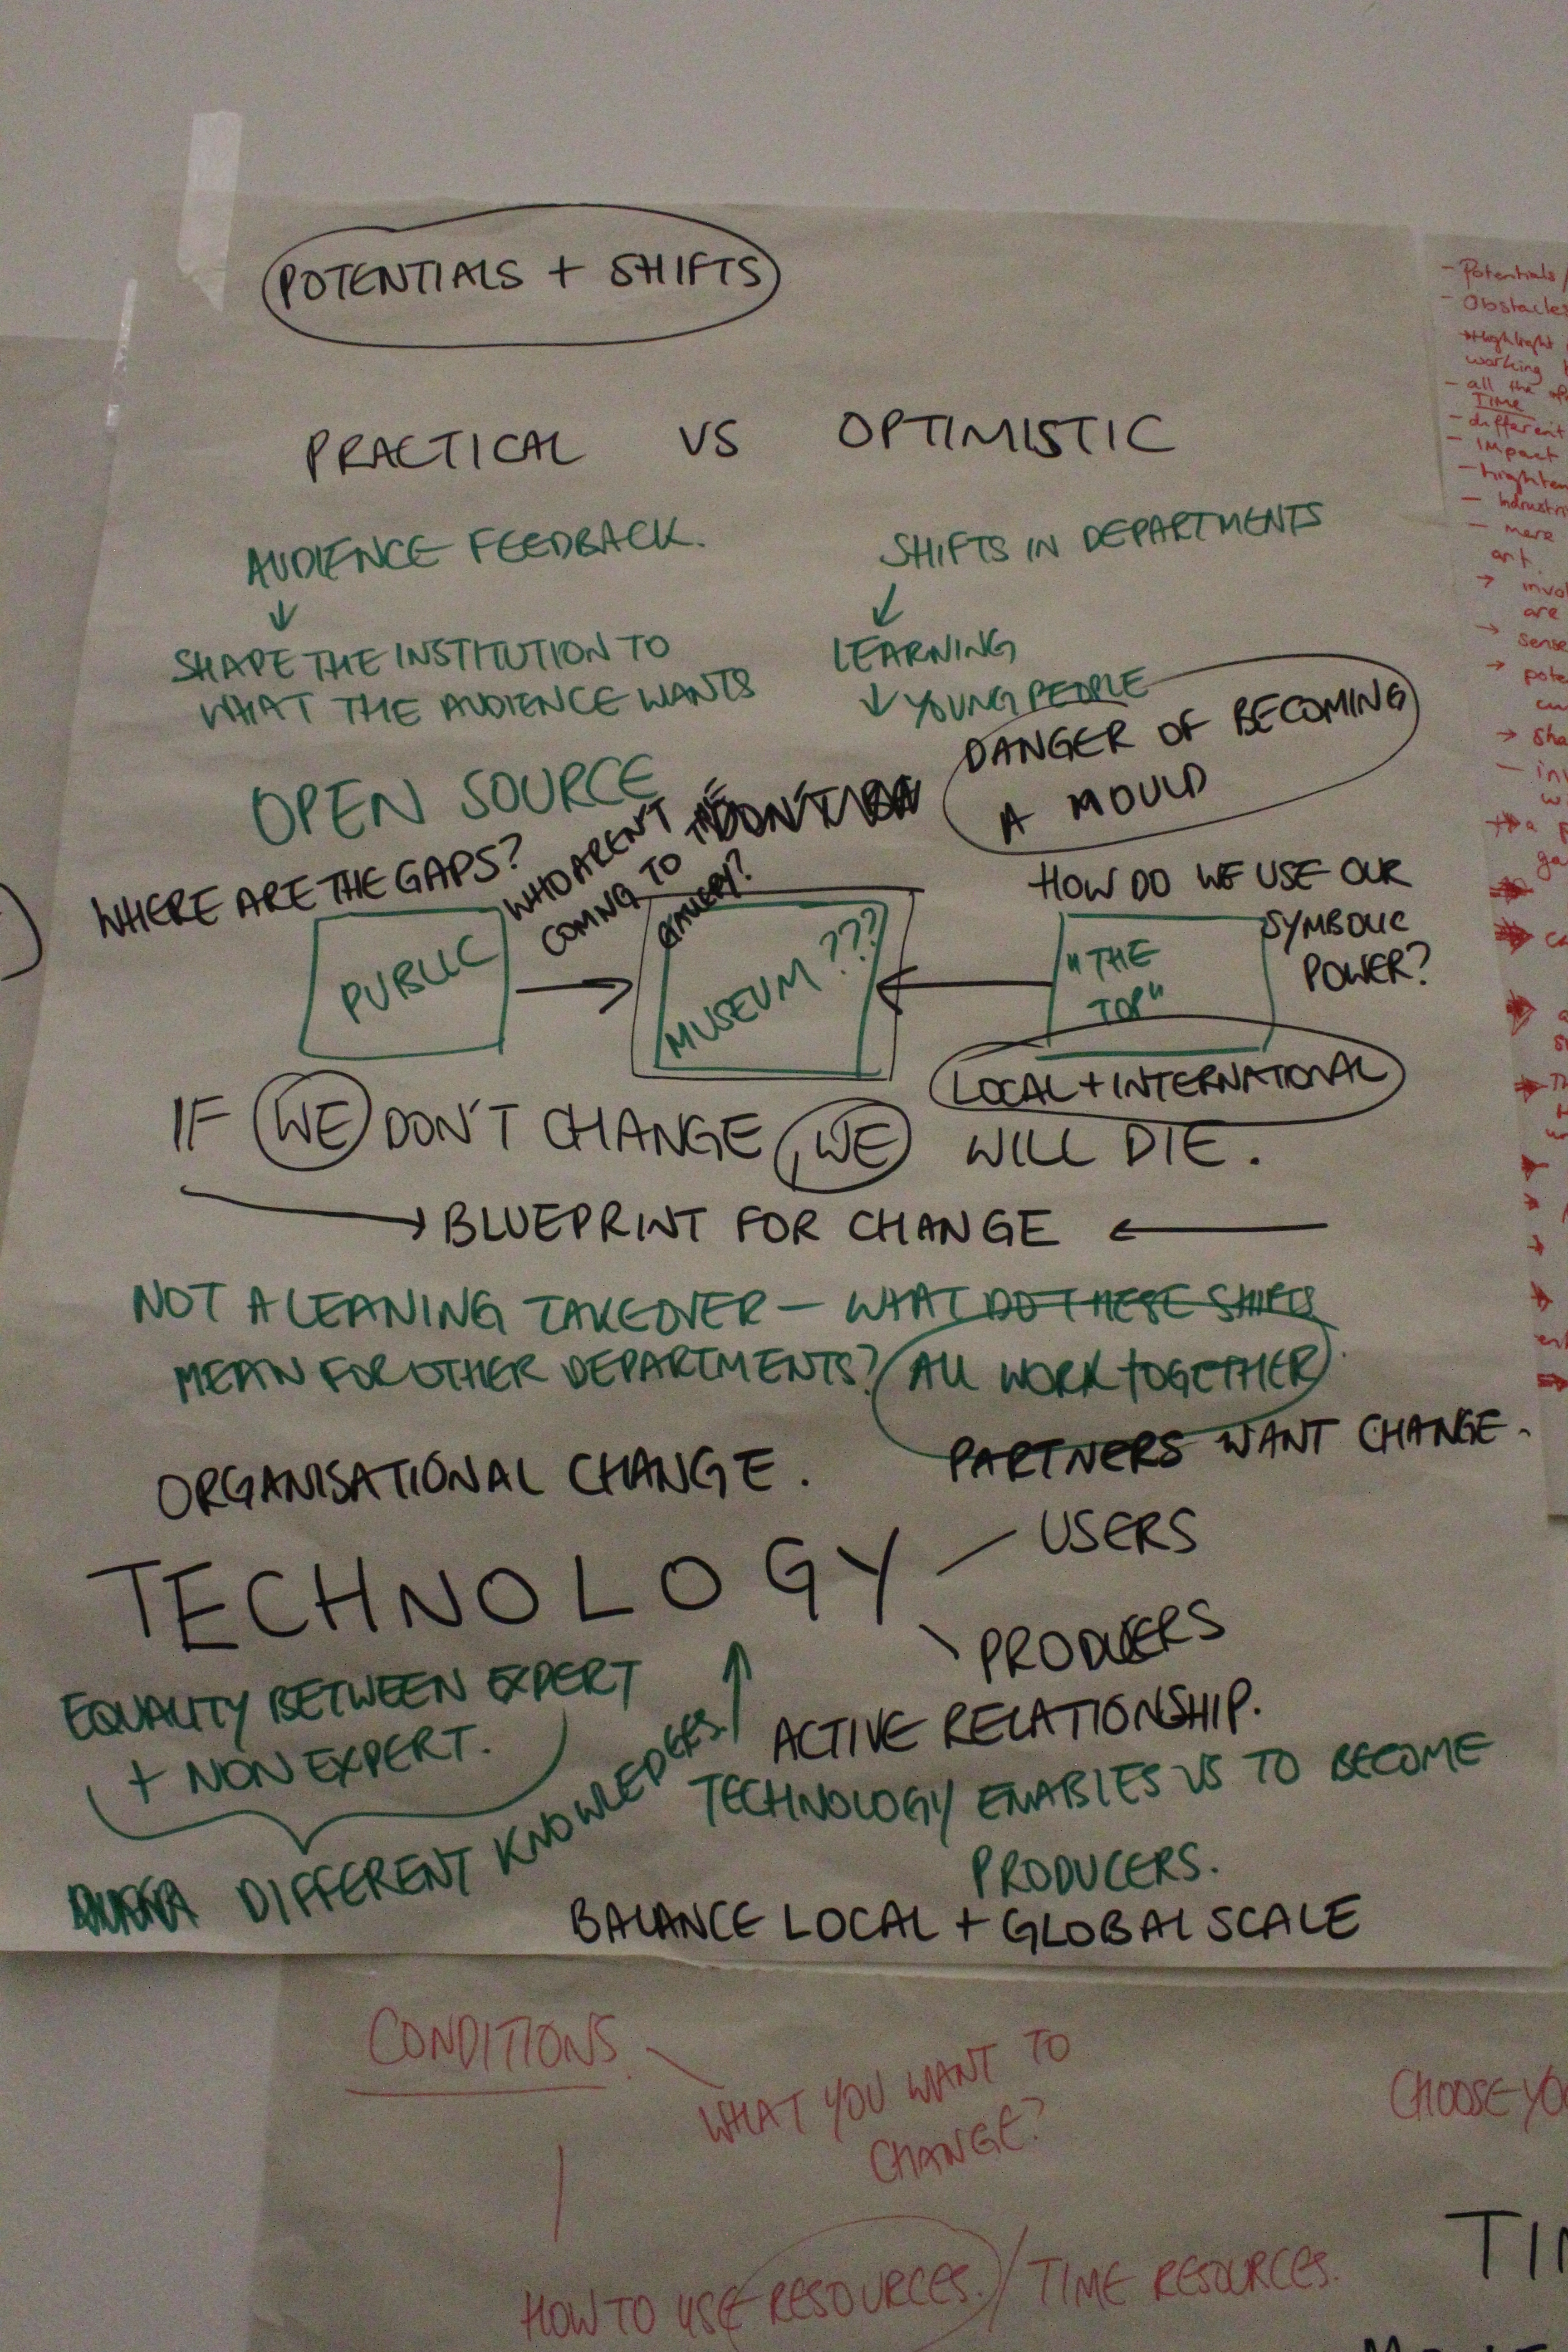 POTENTIALS + SHIFTS
PRACTICAL VS OPTIMISTIC
AUDIENCE FEEDBACK.
↓
SHAPE THE INSTITUTION TO
WHAT THE AUDIENCE WANTS
SHIFTS IN DEPARTMENTS
↓
LEARNING
↓ YOUNG PEOPLE
DANGER OF BECOMING
A MOULD
OPEN SOURCE
WHERE ARE THE GAPS?
WHO AREN'T
COMING TO THE
GALLERY?
DON'T
HOW DO WE USE OUR
SYMBOLIC
POWER?
PUBLIC
MUSEUM ???
"THE
TOP"
LOCAL + INTERNATIONAL
IF WE DON'T CHANGE, WE WILL DIE.
→ BLUEPRINT FOR CHANGE ←
NOT A LEARNING TAKEOVER – WHAT DO THESE SHIFTS
MEAN FOR OTHER DEPARTMENTS? ALL WORK TOGETHER
ORGANISATIONAL CHANGE.
PARTNERS WANT CHANGE.
TECHNOLOGY
USERS
PRODUCERS
ACTIVE RELATIONSHIP.
EQUALITY BETWEEN EXPERT
+ NON EXPERT.
DIFFERENT KNOWLEDGES.
TECHNOLOGY ENABLES US TO BECOME
PRODUCERS.
BALANCE LOCAL + GLOBAL SCALE
CONDITIONS.
WHAT YOU WANT TO
CHANGE?
HOW TO USE RESOURCES. / TIME RESOURCES.
CHOOSE
- Potentials /
- Obstacles
Highlight
working
- all the
TIME
- different
- Impact
- more
art.
are